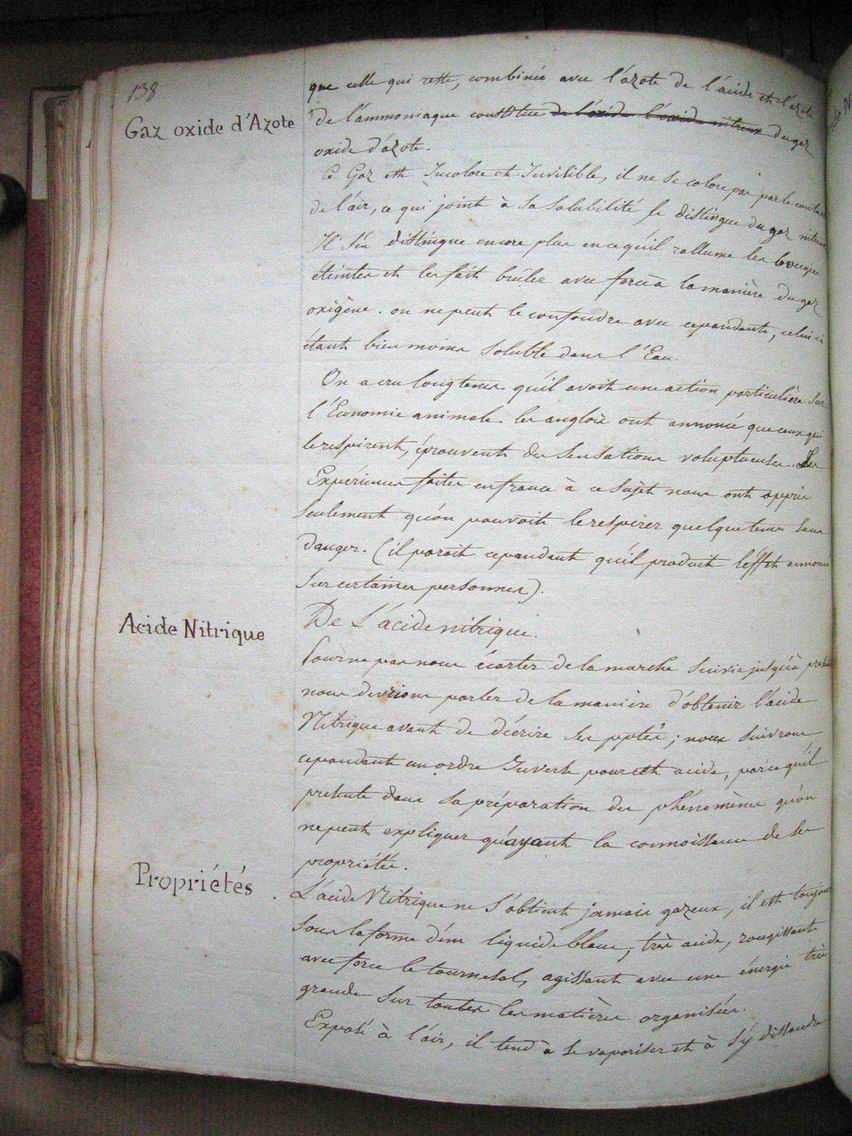 138
que celle qui reste, combinée avec l'azote de l'acide et l'azote
Gaz oxide d'Azote
de l'ammoniaque constitue de l'oxide l'acide nitreux du gaz
oxide d'azote.
Ce Gaz est Incolore et Invisible, il ne se colore pas par le contact
de l'air, ce qui joint à sa solubilité le distingue du gaz nitreux
Il s'en distingue encore plus en ce qu'il rallume les bougies
éteintes et les fait brûler avec force à la manière du gaz
oxigène. on ne peut le confondre avec cependant, celui ci
étant bien moins soluble dans l'Eau.
On a cru longtems qu'il avoit une action particulière sur
l'Economie animale. les anglois ont annoncé que ceux qui
le respirent, éprouvent des sensations voluptueuses. Les
Expériences faites en france à ce sujet nous ont appris
seulement qu'on pouvoit le respirer quelque tems sans
danger. (il paroit cependant qu'il produit l'effet annoncé
sur certaines personnes).
Acide Nitrique
De L'acide nitrique.
Pour ne pas nous écarter de la marche suivie jusqu'à présent
nous devrions parler de la manière d'obtenir l'acide
Nitrique avant de décrire ses pptés; nous suivrons
cependant un ordre Inverse pour cet acide, parce qu'il
présente dans sa préparation des phénomènes qu'on
ne peut expliquer qu'ayant la connoissance de ses
propriétés.
Propriétés.
L'acide Nitrique ne s'obtient jamais gazeux, il est toujours
sous la forme d'un liquide blanc, très acide, rougissant
avec force le tournesol, agissant avec une énergie très
grande sur toutes les matières organisées.
Exposé à l'air, il tend à se vaporiser et à s'y dissoudre